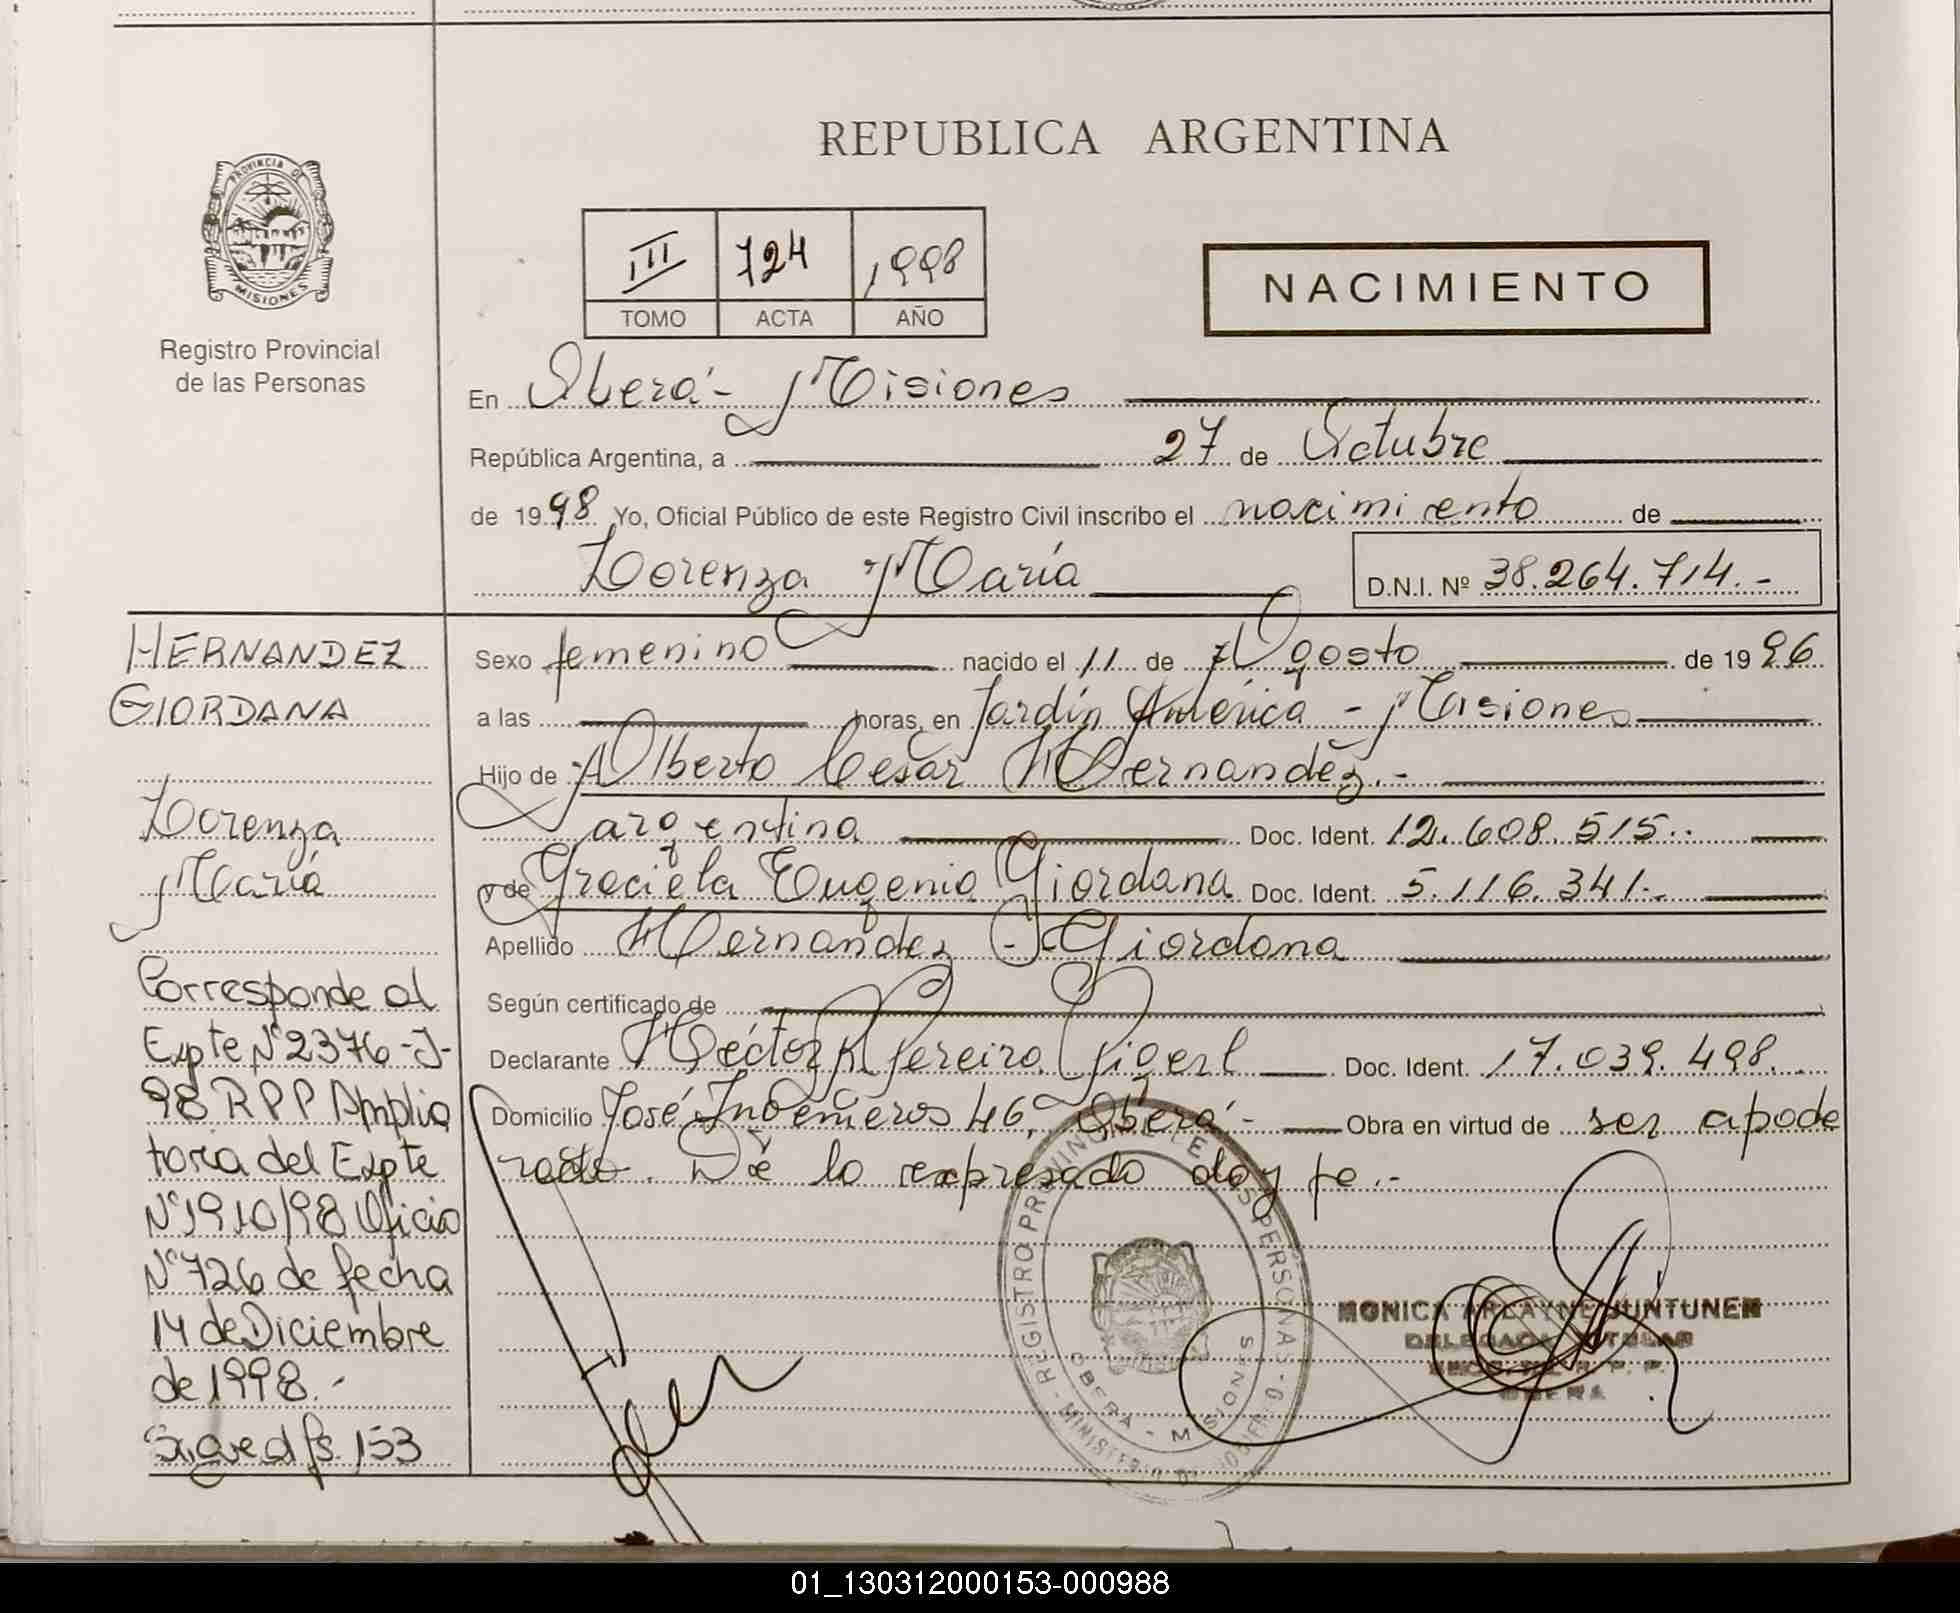 REPUBLICA ARGENTINA
PROVINCIA DE
MISIONES
Registro Provincial
de las Personas
III 724 1998
TOMO ACTA AÑO
NACIMIENTO
En Oberá - Misiones
República Argentina, a 27 de Octubre
de 1998 Yo, Oficial Público de este Registro Civil inscribo el nacimiento de
Lorenza María D.N.I. Nº 38.264.714.-
HERNANDEZ
GIORDANA
Lorenza
María
Corresponde al
Expte Nº 2376-J-
98 RPP Amplia
toria del Expte
Nº 1910/98 Oficio
Nº 726 de fecha
14 de Diciembre
de 1998.-
Sigue al fs. 153
Sexo femenino nacido el 11 de Agosto de 1996
a las horas, en Jardín América - Misiones
Hijo de Alberto Cesar Hernandez.-
argentina Doc. Ident. 12.608.515.
y de Graciela Eugenia Giordana Doc. Ident. 5.116.341.-
Apellido Hernandez - Giordana
Según certificado de
Declarante Héctor R Pereira Pigerl Doc. Ident. 17.039.498.
Domicilio José Ingenieros 46, Oberá - Obra en virtud de ser apode
rado. De lo expresado doy fe.-
REGISTRO PROVINCIAL DE LAS PERSONAS
OBERA - MISIONES
MONICA ARLAYNE JUNTUNEN
DELEGADA TITULAR
R. P. P.
OBERA
01_130312000153-000988